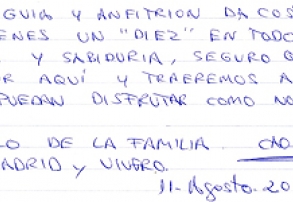 GUIA Y ANFITRION DA COS
ENES UN "DIEZ" EN TODO
Y SABIDURIA, SEGURO Q
R AQUÍ Y TRAEREMOS A
PUEDAN DISFRUTAR COMO NO
LO DE LA FAMILIA
ADRID Y VIVERO.
11-Agosto-20